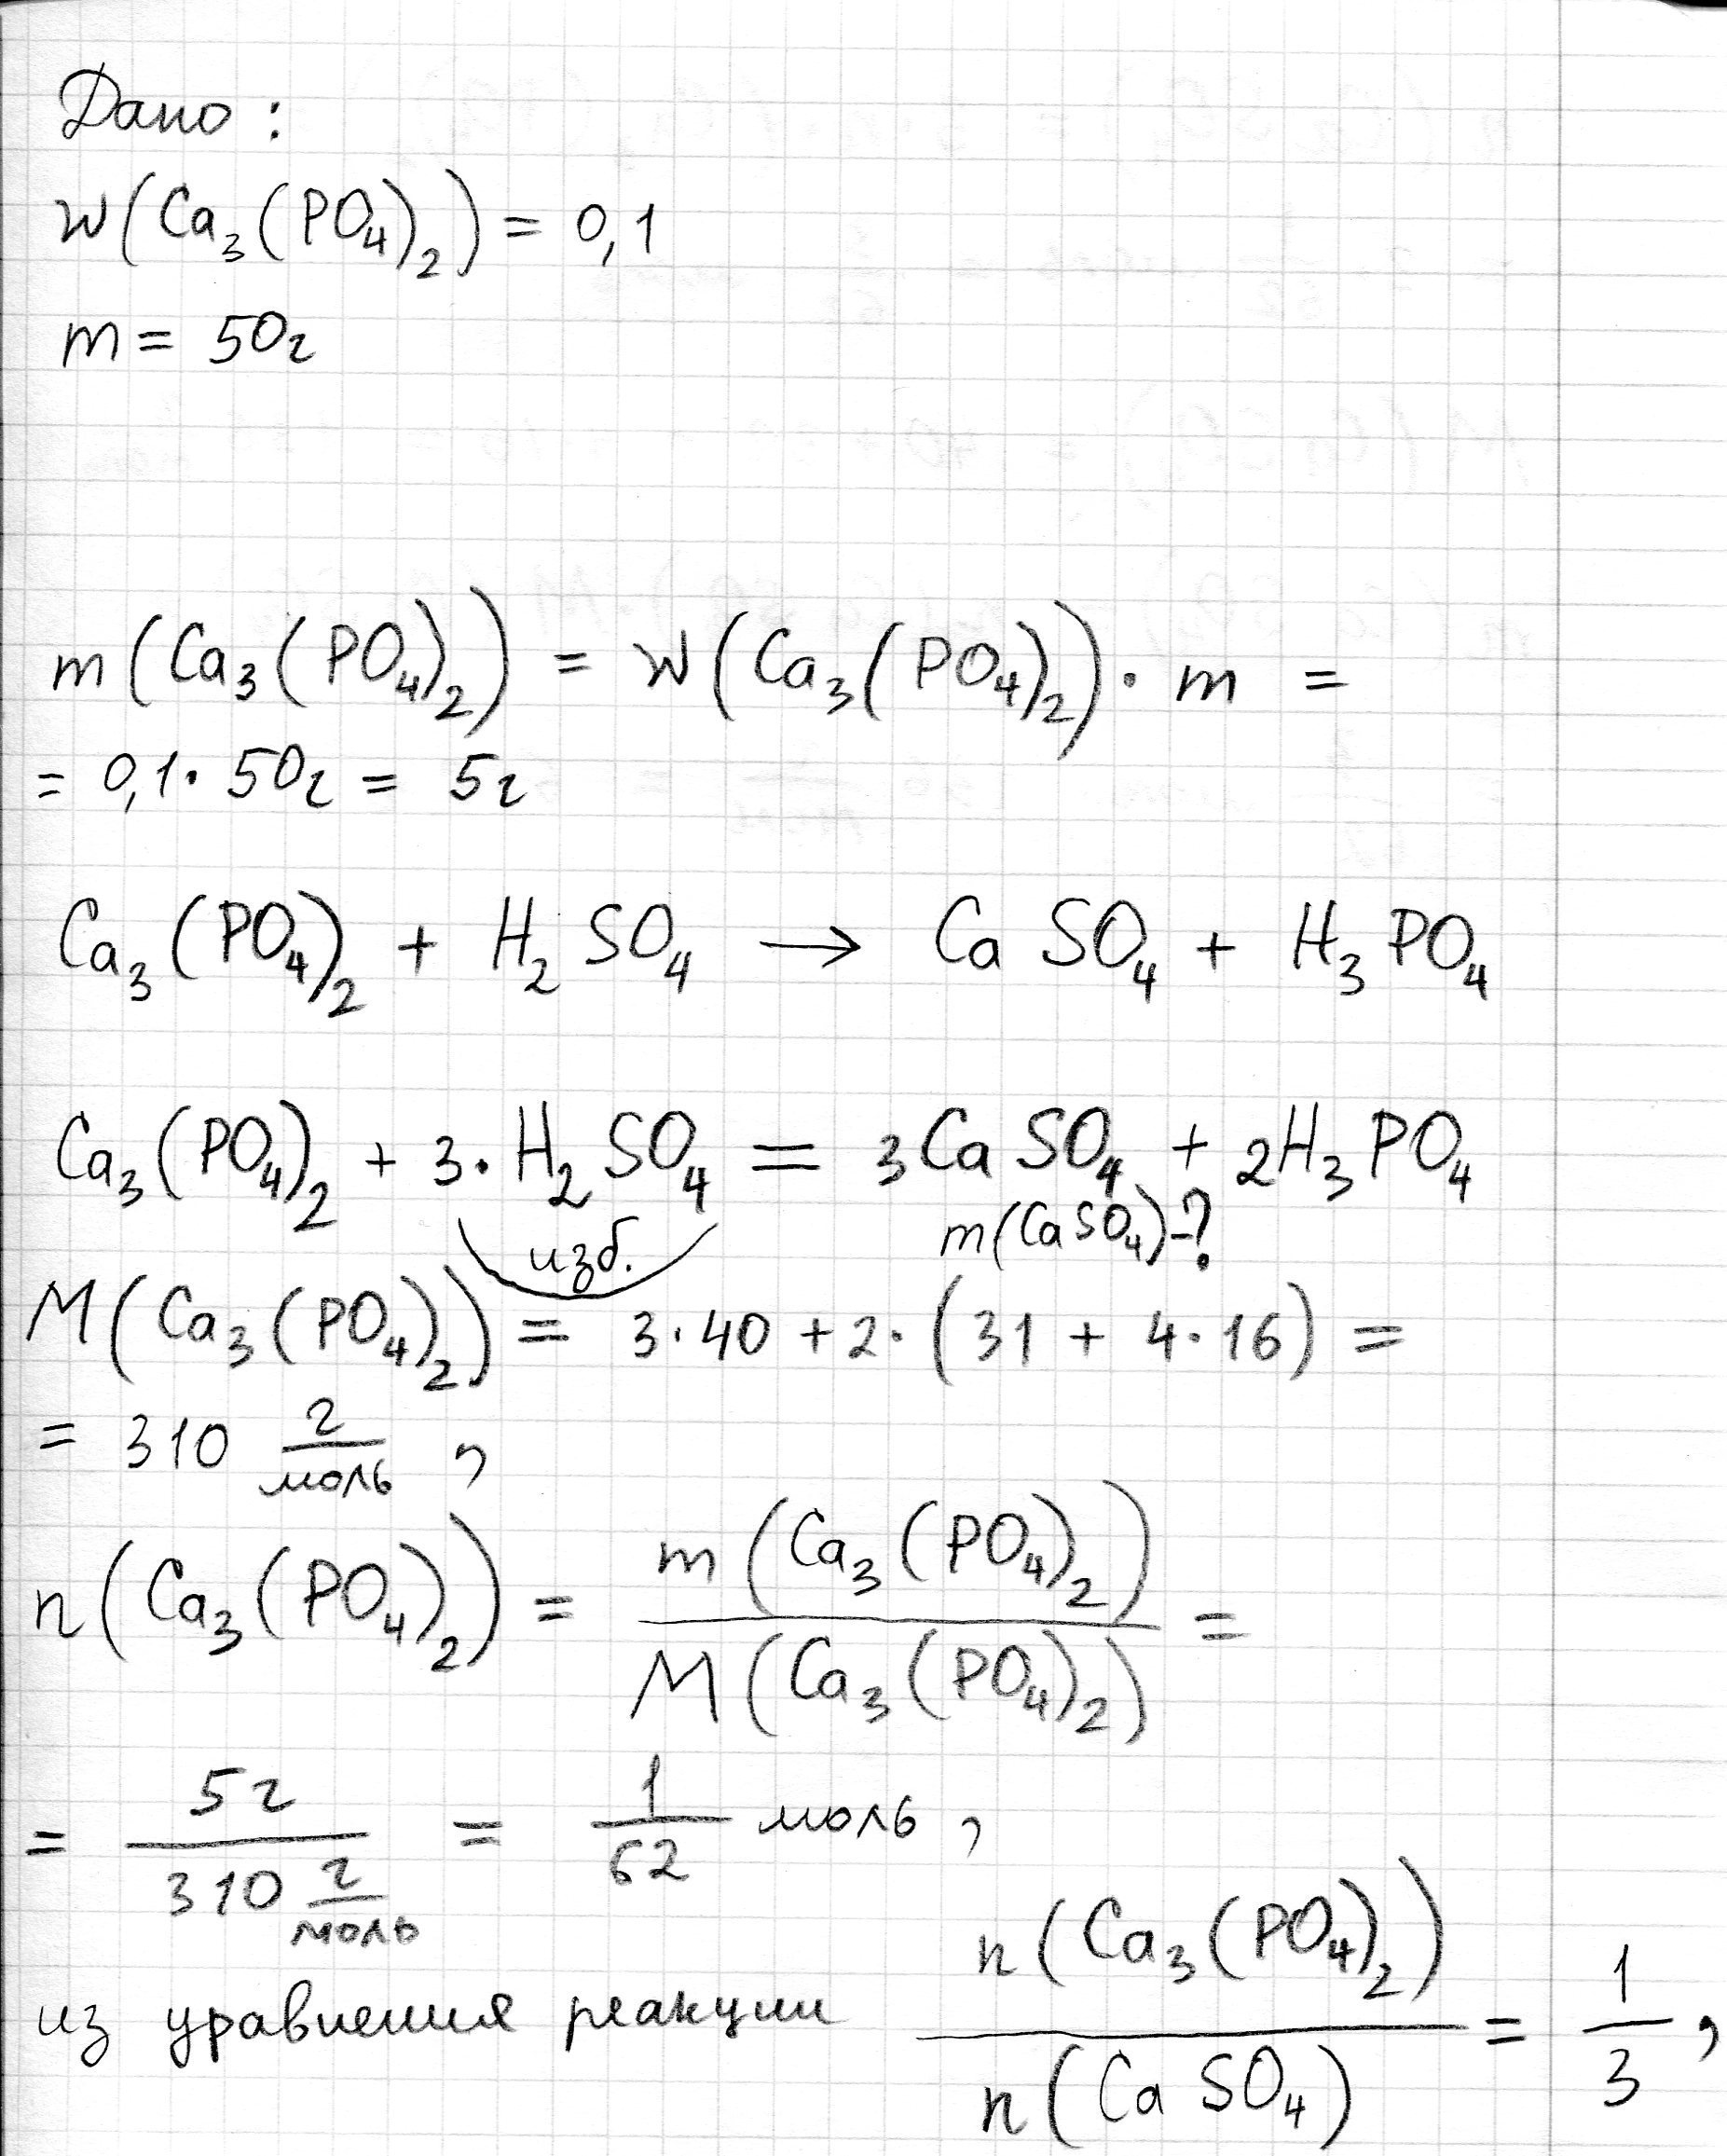 Дано:
w(Ca₃(PO₄)₂) = 0,1
m = 50г
m(Ca₃(PO₄)₂) = w(Ca₃(PO₄)₂) · m =
= 0,1 · 50г = 5г
Ca₃(PO₄)₂ + H₂SO₄ → CaSO₄ + H₃PO₄
Ca₃(PO₄)₂ + 3·H₂SO₄ = 3CaSO₄ + 2H₃PO₄
изб. m(CaSO₄)-?
M(Ca₃(PO₄)₂) = 3·40 + 2·(31 + 4·16) =
= 310 г/моль,
n(Ca₃(PO₄)₂) = m(Ca₃(PO₄)₂) / M(Ca₃(PO₄)₂) =
= 5г / 310 г/моль = 1/62 моль,
из уравнения реакции n(Ca₃(PO₄)₂) / n(CaSO₄) = 1/3,